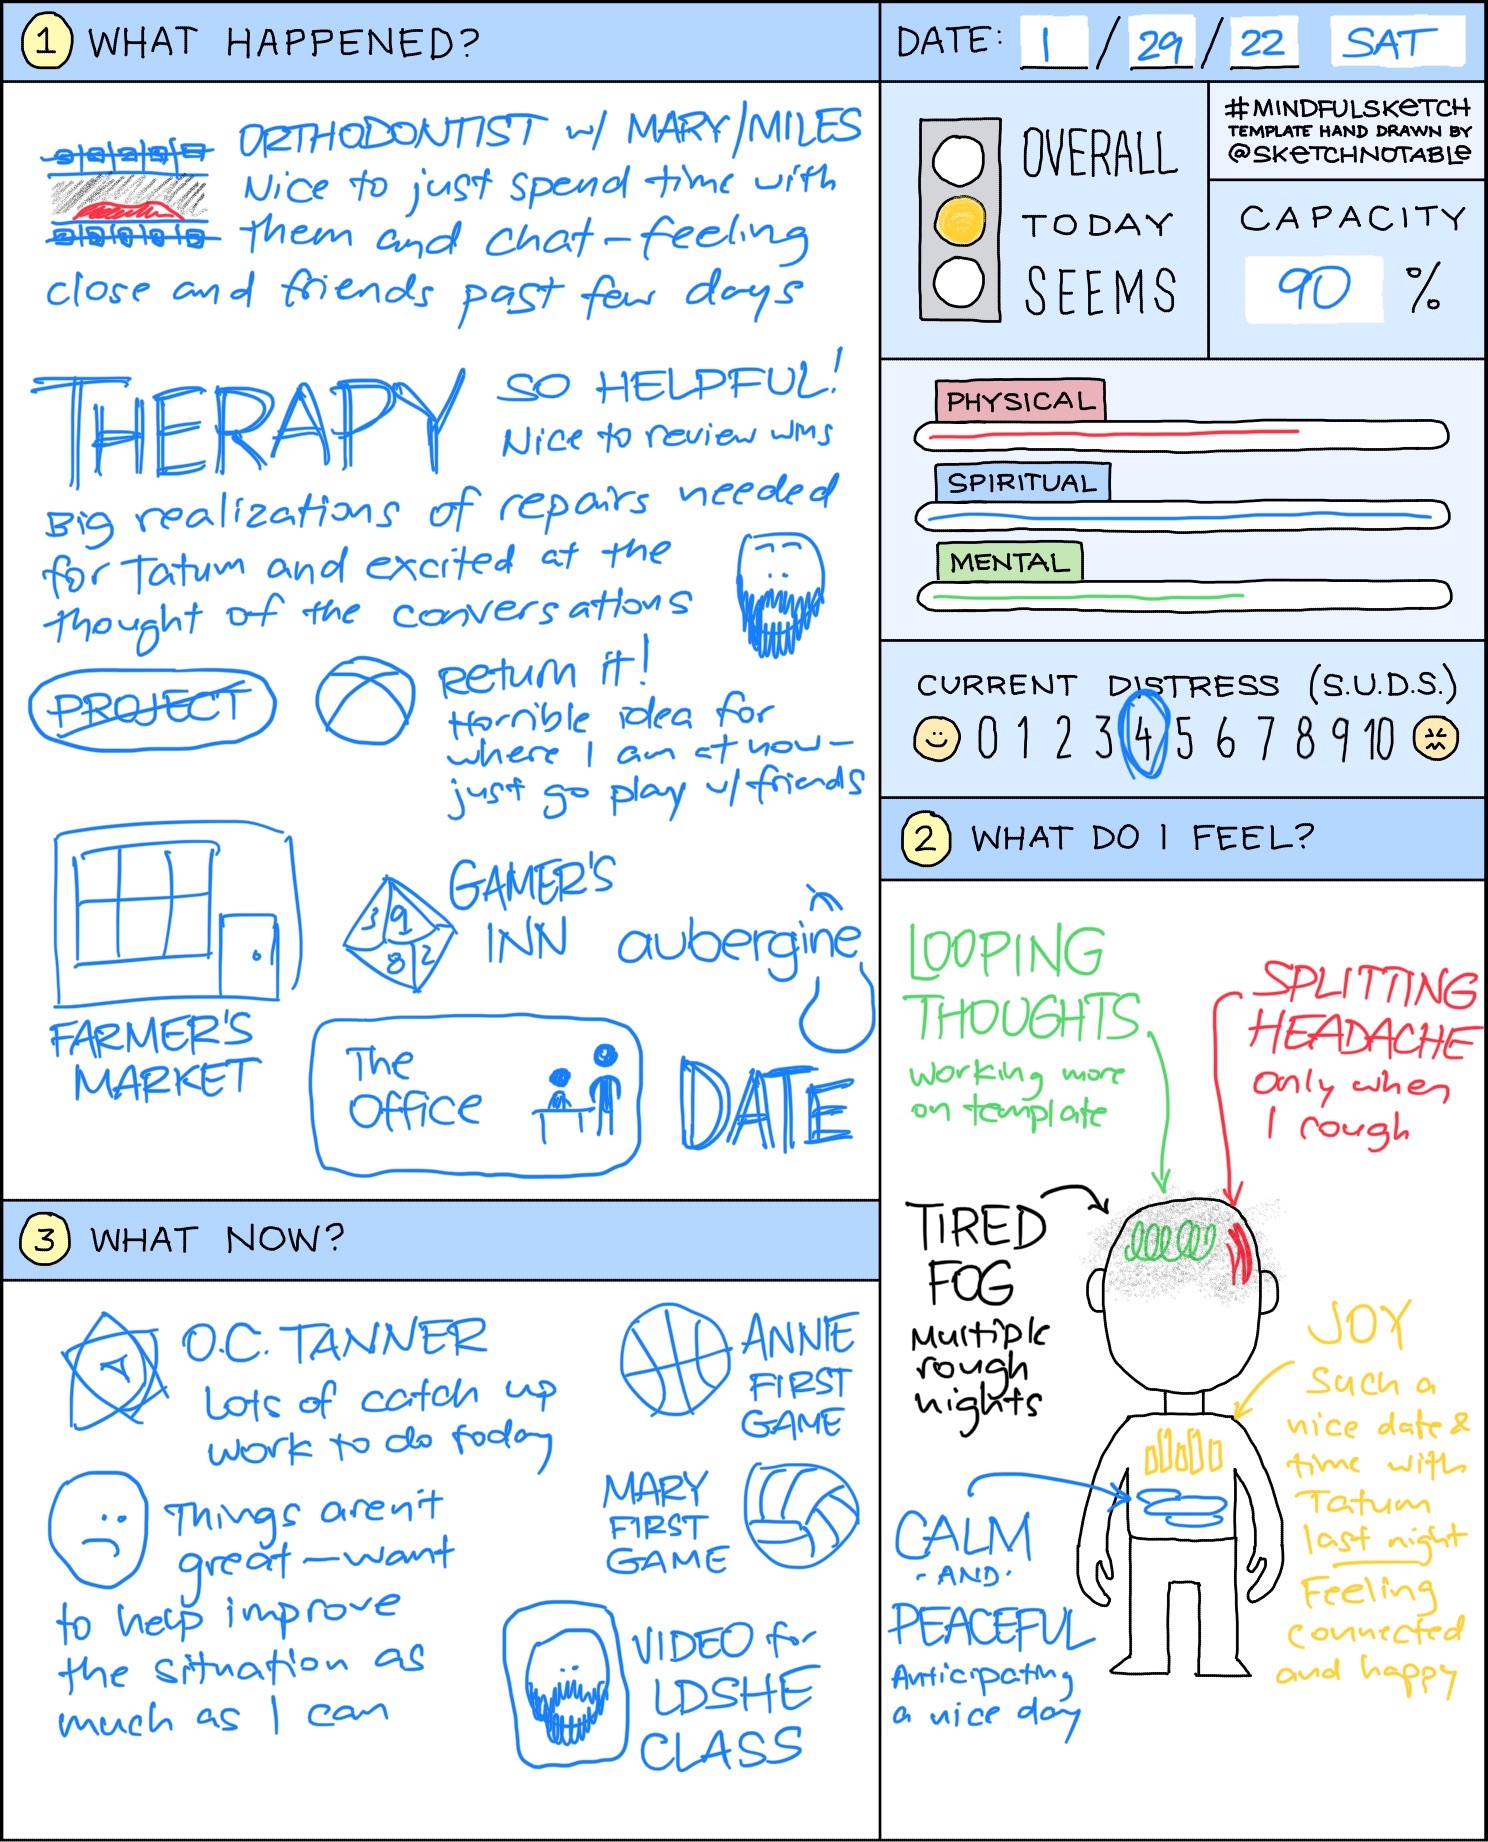 1 WHAT HAPPENED?
ORTHODONTIST w/ MARY/MILES
Nice to just spend time with
them and chat - feeling
close and friends past few days
THERAPY
SO HELPFUL!
Nice to review wms
Big realizations of repairs needed
for Tatum and excited at the
thought of the conversations
PROJECT
RETURN IT!
Horrible idea for
where I am at now -
just go play w/ friends
FARMER'S
MARKET
3 9
8 2
GAMER'S
INN
aubergine
The
Office
DATE
DATE: 1 / 29 / 22 SAT
OVERALL
TODAY
SEEMS
#MINDFULSKETCH
TEMPLATE HAND DRAWN BY
@SKETCHNOTABLE
CAPACITY
90 %
PHYSICAL
SPIRITUAL
MENTAL
CURRENT DISTRESS (S.U.D.S.)
0 1 2 3 4 5 6 7 8 9 10
2 WHAT DO I FEEL?
LOOPING
THOUGHTS
working more
on template
SPLITTING
HEADACHE
only when
I cough
TIRED
FOG
Multiple
rough
nights
JOY
Such a
nice date &
time with
Tatum
last night
Feeling
connected
and happy
CALM
-AND-
PEACEFUL
Anticipating
a nice day
3 WHAT NOW?
O.C. TANNER
Lots of catch up
work to do today
Things aren't
great - want
to help improve
the situation as
much as I can
ANNIE
FIRST
GAME
MARY
FIRST
GAME
VIDEO for
LDSHE
CLASS